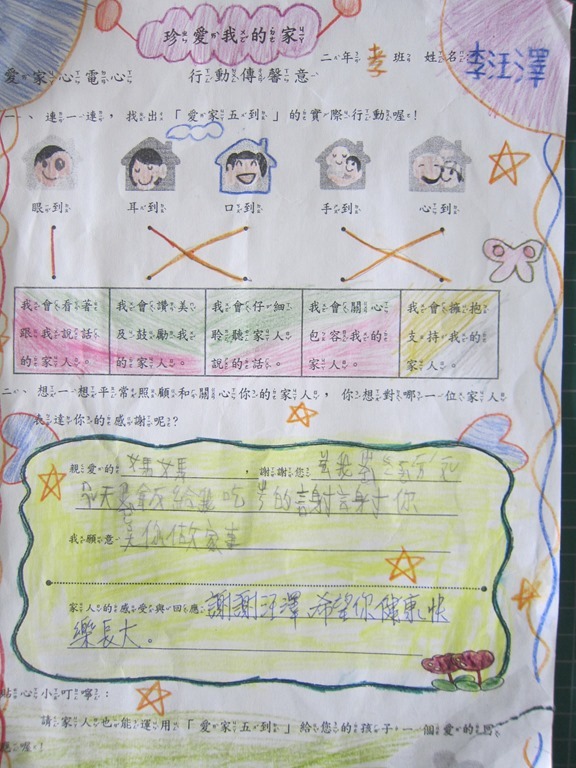 珍愛我的家
二年孝班 姓名李汪澤
愛家心電心 行動傳馨意
一、連一連,找出「愛家五到」的實際行動喔!
眼到 耳到 口到 手到 心到
我會看著跟我說話的家人。
我會讚美及鼓勵我的家人。
我會仔細聆聽家人說的話。
我會關心包容我的家人。
我會擁抱支持我的家人。
二、想一想平常照顧和關心你的家人,你想對哪一位家人
表達你的感謝呢?
親愛的媽媽,謝謝您
天 飯給我吃 的謝謝你
我願意 你做家事
家人的感受與回應:謝謝汪澤 希望你健康快
樂長大。
貼心小叮嚀:
請家人也能運用「愛家五到」給您的孩子一個愛的
喔!